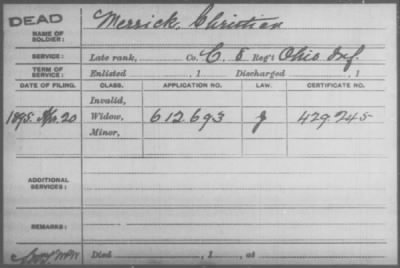 DEAD
Merrick, Christian
NAME OF
SOLDIER:
SERVICE: Late rank, Co. C. 5 Reg't Ohio Inf.
TERM OF
SERVICE: Enlisted , 1 Discharged , 1
DATE OF FILING. CLASS. APPLICATION NO. LAW. CERTIFICATE NO.
Invalid,
1895. 20 Widow, 612.693 g 429.245
Minor,
ADDITIONAL
SERVICES:
REMARKS:
Died , 1 , at